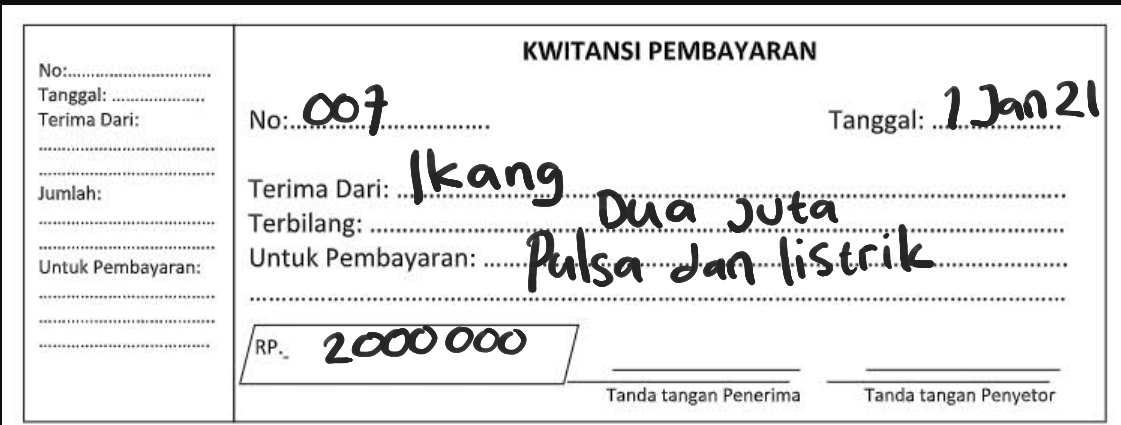 No:................................
Tanggal: .....................
Terima Dari:
........................................
........................................
Jumlah:
........................................
........................................
Untuk Pembayaran:
........................................
........................................
.......................................
KWITANSI PEMBAYARAN
No:...007.................... Tanggal: ...1 Jan 21
Terima Dari: ...Ikang...............................................
Terbilang: ..............................Dua juta..............................
Untuk Pembayaran: ......Pulsa dan listrik....................
........................................................................................
RP._ 2000 000
Tanda tangan Penerima Tanda tangan Penyetor